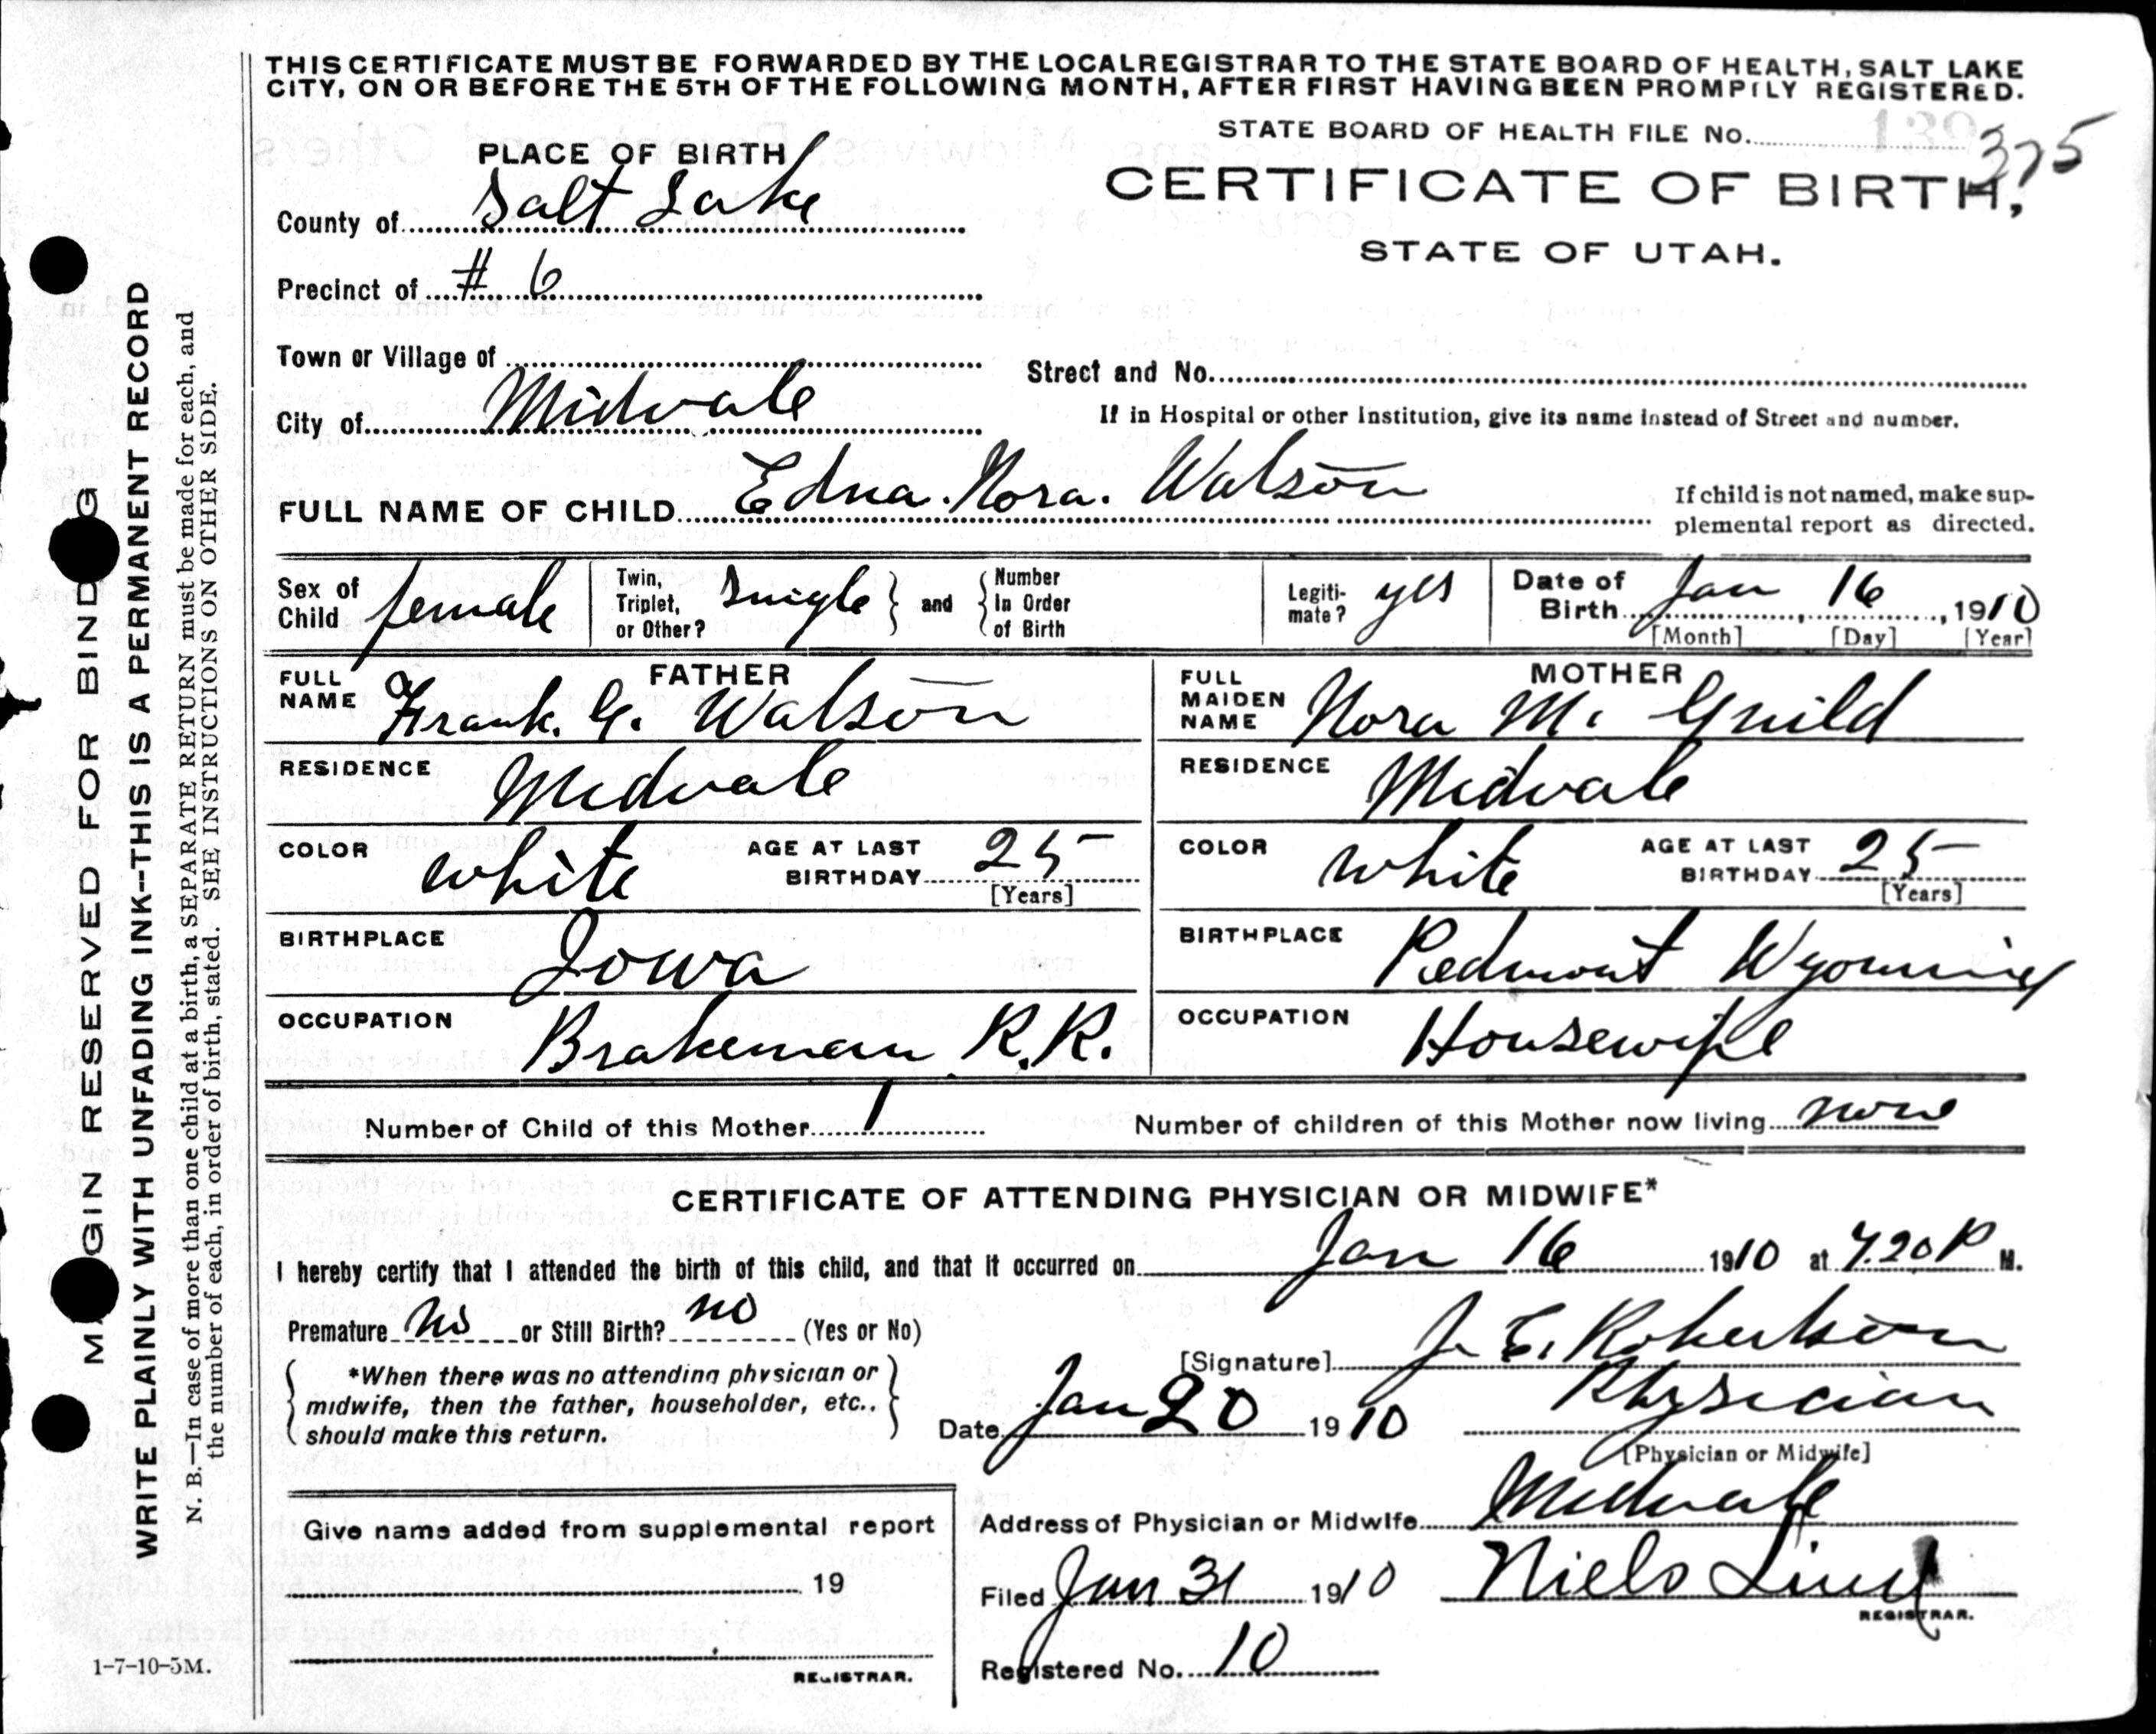 THIS CERTIFICATE MUST BE FORWARDED BY THE LOCAL REGISTRAR TO THE STATE BOARD OF HEALTH, SALT LAKE
CITY, ON OR BEFORE THE 5TH OF THE FOLLOWING MONTH, AFTER FIRST HAVING BEEN PROMPTLY REGISTERED.
STATE BOARD OF HEALTH FILE No. 139
375
CERTIFICATE OF BIRTH,
STATE OF UTAH.
PLACE OF BIRTH
County of Salt Lake
Precinct of # 6
Town or Village of
Street and No.
City of Midvale
If in Hospital or other Institution, give its name instead of Street and number.
FULL NAME OF CHILD Edna. Nora. Watson
If child is not named, make sup-
plemental report as directed.
Sex of Child female
Twin, Triplet, or Other? Single and Number In Order of Birth
Legiti-mate? yes
Date of Birth Jan 16, 1910
[Month] [Day] [Year]
FATHER
FULL NAME Frank. G. Watson
RESIDENCE Midvale
COLOR white AGE AT LAST BIRTHDAY 25
[Years]
BIRTHPLACE Iowa
OCCUPATION Brakeman R.R.
MOTHER
FULL MAIDEN NAME Nora M. Guild
RESIDENCE Midvale
COLOR white AGE AT LAST BIRTHDAY 25
[Years]
BIRTHPLACE Piedmont Wyoming
OCCUPATION Housewife
Number of Child of this Mother 1 Number of children of this Mother now living none
CERTIFICATE OF ATTENDING PHYSICIAN OR MIDWIFE*
I hereby certify that I attended the birth of this child, and that it occurred on Jan 16 1910 at 7.20 P M.
Premature No or Still Birth? no (Yes or No)
*When there was no attending physician or
midwife, then the father, householder, etc.,
should make this return.
[Signature] J. E. Robertson
Date Jan 20 1910 Physician
[Physician or Midwife]
Address of Physician or Midwife Midvale
Give name added from supplemental report
19
REGISTRAR.
Filed Jan 31 1910 Niels Lind
REGISTRAR.
Registered No. 10
1-7-10-5M.
MARGIN RESERVED FOR BINDING
WRITE PLAINLY WITH UNFADING INK—THIS IS A PERMANENT RECORD
N. B.—In case of more than one child at a birth, a SEPARATE RETURN must be made for each, and
the number of each, in order of birth, stated. SEE INSTRUCTIONS ON OTHER SIDE.